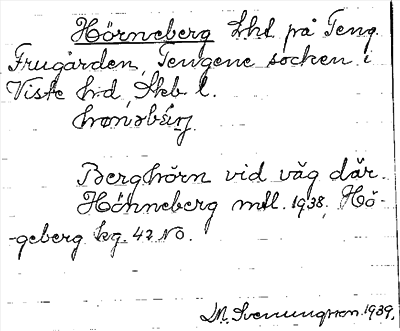 Hörneberg Lht på Teng
Frugården, Tengene socken i
Viste hd, Skb l.
Berghörn vid väg där.
Hönneberg mtl. 1938, Hö-
-geberg kg. 42 NO.
M. Svenungson. 1939.